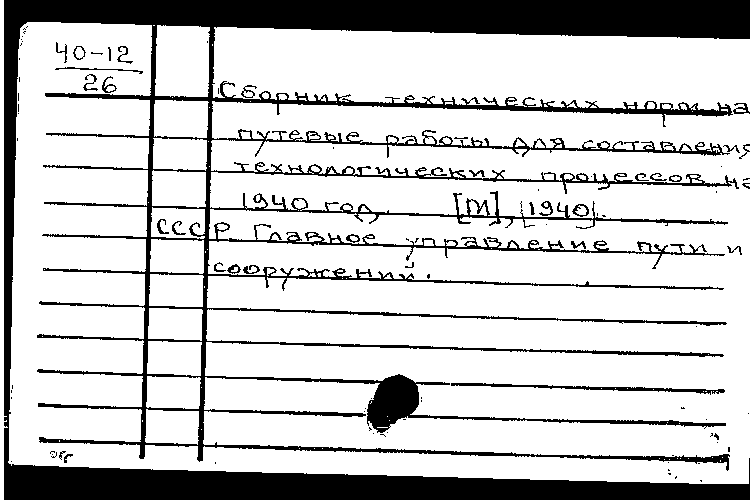 40-12
26
Сборник технических норм на
путевые работы для составления
технологических процессов на
1940 год. [М], [1940].
СССР Главное управление пути и
сооружений.